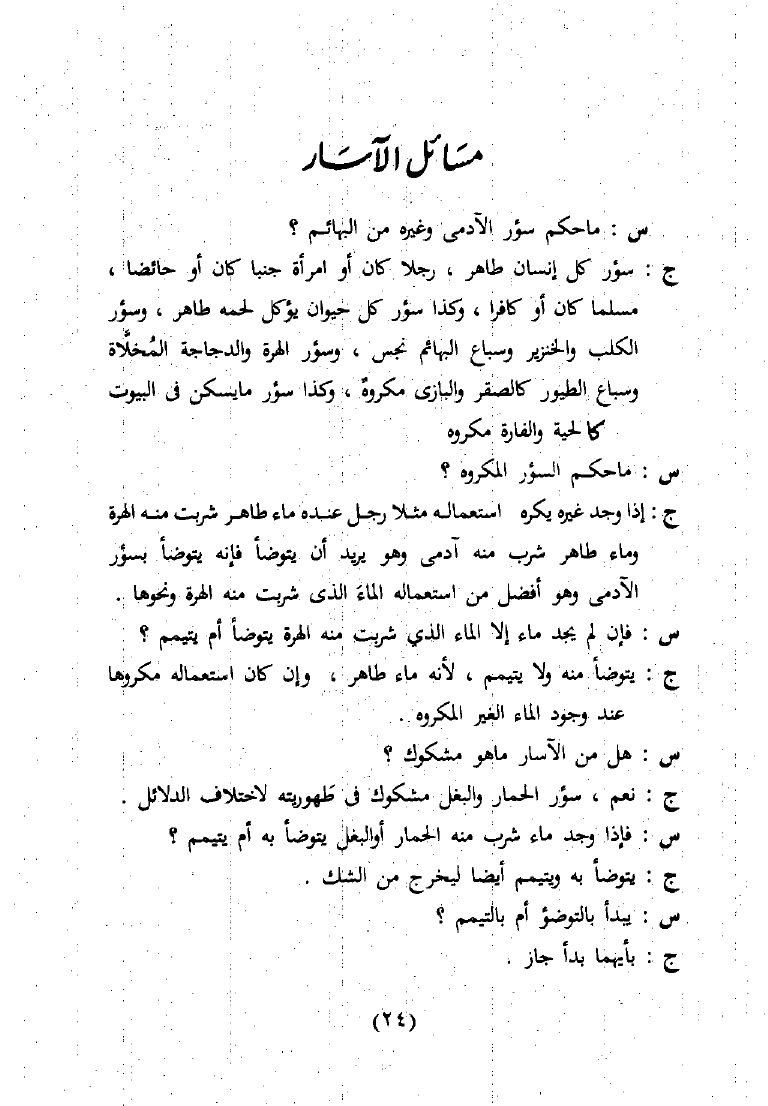 مسَائل الآسَار
س : ماحكم سؤر الآدمى وغيره من البهائم ؟
ج : سؤر كل إنسان طاهر ، رجلا كان أو امرأة جنبا كان أو حائضا ،
مسلما كان أو كافرا ، وكذا سؤر كل حيوان يؤكل لحمه طاهر ، وسؤر
الكلب والخنزير وسباع البهائم نجس ، وسؤر الهرة والدجاجة المُخلَّاة
وسباع الطيور كالصقر والبازى مكروهٌ ، وكذا سؤر مايسكن فى البيوت
كالحية والفارة مكروه
س : ماحكم السؤر المكروه ؟
ج : إذا وجد غيره يكره استعماله مثلا رجل عنده ماء طاهر شربت منه الهرة
وماء طاهر شرب منه آدمى وهو يريد أن يتوضأ فإنه يتوضأ بسؤر
الآدمى وهو أفضل من استعماله الماءَ الذى شربت منه الهرة ونحوها .
س : فإن لم يجد ماء إلا الماء الذي شربت منه الهرة يتوضأ أم يتيمم ؟
ج : يتوضأ منه ولا يتيمم ، لأنه ماء طاهر ، وإن كان استعماله مكروها
عند وجود الماء الغير المكروه .
س : هل من الآسار ماهو مشكوك ؟
ج : نعم ، سؤر الحمار والبغل مشكوك فى طَهوريته لاختلاف الدلائل .
س : فإذا وجد ماء شرب منه الحمار أوالبغل يتوضأ به أم يتيمم ؟
ج : يتوضأ به ويتيمم أيضا ليخرج من الشك .
س : يبدأ بالتوضؤ أم بالتيمم ؟
ج : بأيهما بدأ جاز .
(٢٤)